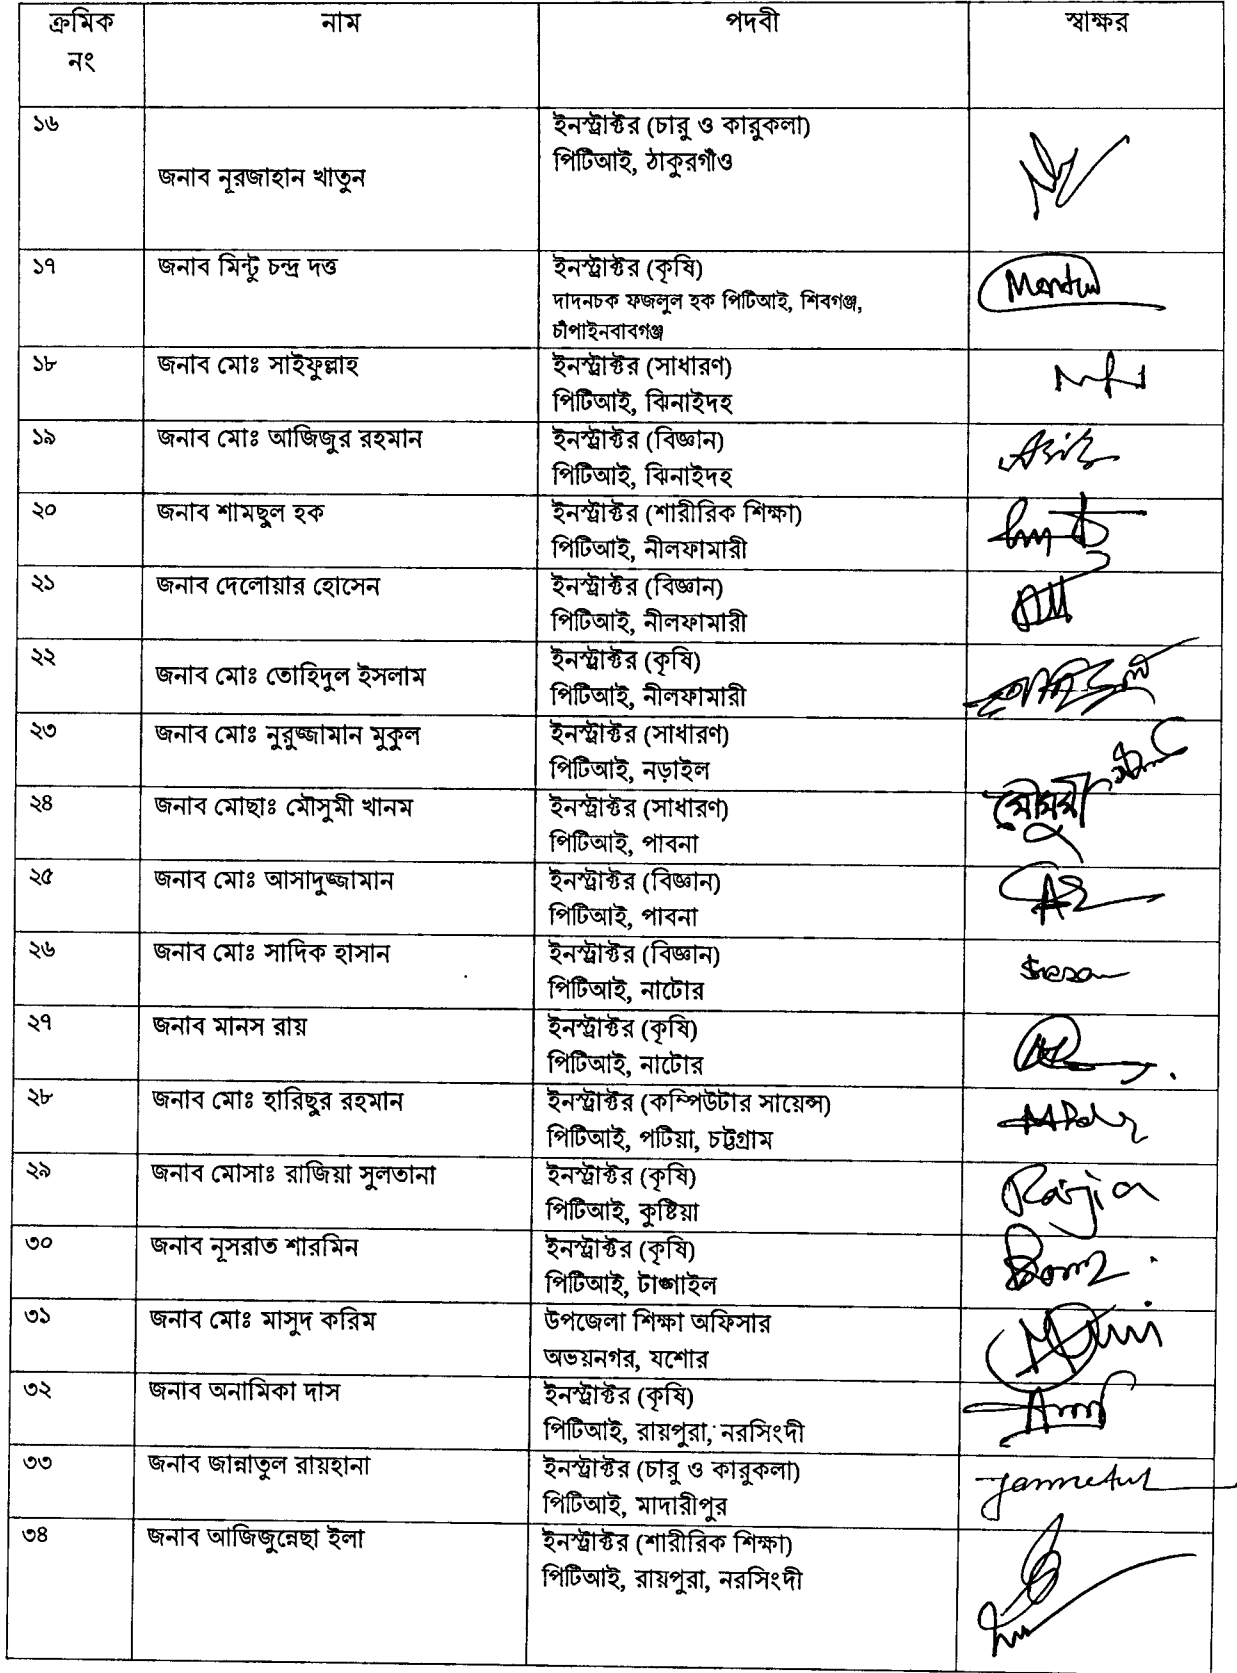 ক্রমিক নাম পদবী স্বাক্ষর
নং
১৬ ইনস্ট্রাক্টর (চারু ও কারুকলা)
জনাব নূরজাহান খাতুন পিটিআই, ঠাকুরগাঁও
১৭ জনাব মিন্টু চন্দ্র দত্ত ইনস্ট্রাক্টর (কৃষি)
দাদনচক ফজলুল হক পিটিআই, শিবগঞ্জ,
চাঁপাইনবাবগঞ্জ
১৮ জনাব মোঃ সাইফুল্লাহ ইনস্ট্রাক্টর (সাধারণ)
পিটিআই, ঝিনাইদহ
১৯ জনাব মোঃ আজিজুর রহমান ইনস্ট্রাক্টর (বিজ্ঞান)
পিটিআই, ঝিনাইদহ
২০ জনাব শামছুল হক ইনস্ট্রাক্টর (শারীরিক শিক্ষা)
পিটিআই, নীলফামারী
২১ জনাব দেলোয়ার হোসেন ইনস্ট্রাক্টর (বিজ্ঞান)
পিটিআই, নীলফামারী
২২ জনাব মোঃ তোহিদুল ইসলাম ইনস্ট্রাক্টর (কৃষি)
পিটিআই, নীলফামারী
২৩ জনাব মোঃ নুরুজ্জামান মুকুল ইনস্ট্রাক্টর (সাধারণ)
পিটিআই, নড়াইল
২৪ জনাব মোছাঃ মৌসুমী খানম ইনস্ট্রাক্টর (সাধারণ) মৌসুমী
পিটিআই, পাবনা
২৫ জনাব মোঃ আসাদুজ্জামান ইনস্ট্রাক্টর (বিজ্ঞান)
পিটিআই, পাবনা
২৬ জনাব মোঃ সাদিক হাসান ইনস্ট্রাক্টর (বিজ্ঞান)
পিটিআই, নাটোর
২৭ জনাব মানস রায় ইনস্ট্রাক্টর (কৃষি)
পিটিআই, নাটোর
২৮ জনাব মোঃ হারিছুর রহমান ইনস্ট্রাক্টর (কম্পিউটার সায়েন্স)
পিটিআই, পটিয়া, চট্টগ্রাম
২৯ জনাব মোসাঃ রাজিয়া সুলতানা ইনস্ট্রাক্টর (কৃষি) Razia
পিটিআই, কুষ্টিয়া
৩০ জনাব নূসরাত শারমিন ইনস্ট্রাক্টর (কৃষি)
পিটিআই, টাঙ্গাইল
৩১ জনাব মোঃ মাসুদ করিম উপজেলা শিক্ষা অফিসার
অভয়নগর, যশোর
৩২ জনাব অনামিকা দাস ইনস্ট্রাক্টর (কৃষি)
পিটিআই, রায়পুরা, নরসিংদী
৩৩ জনাব জান্নাতুল রায়হানা ইনস্ট্রাক্টর (চারু ও কারুকলা) Jannatul
পিটিআই, মাদারীপুর
৩৪ জনাব আজিজুন্নেছা ইলা ইনস্ট্রাক্টর (শারীরিক শিক্ষা)
পিটিআই, রায়পুরা, নরসিংদী